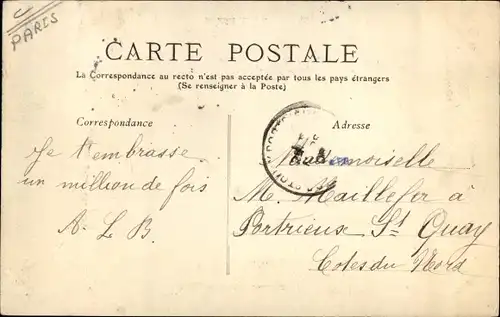 PARIS
CARTE POSTALE
La Correspondance au recto n'est pas acceptée par tous les pays étrangers
(Se renseigner à la Poste)
Correspondance
Adresse
Je t'embrasse
un million de fois
A. L B.
Mademoiselle
M. Maillefer à
Portrieux St Quay
Cotes du Nord